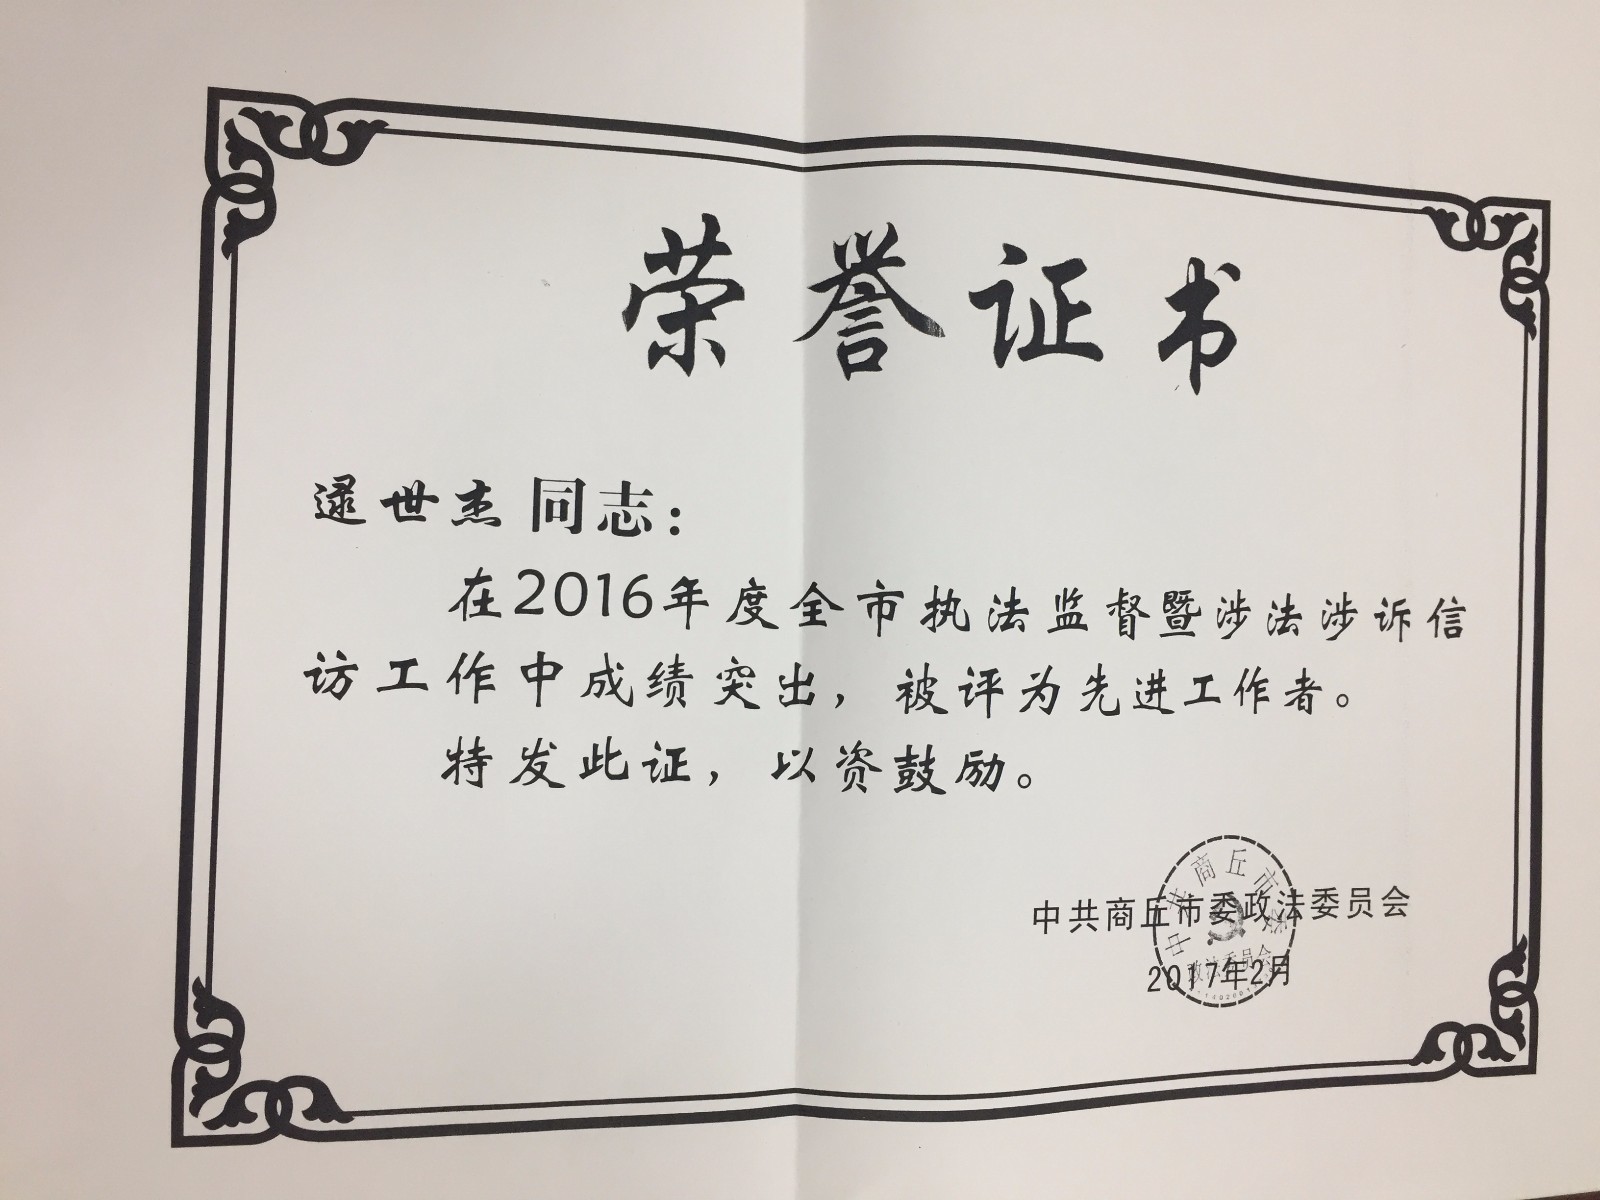 荣誉证书
逯世杰 同志：
在2016年度全市执法监督暨涉法涉诉信
访工作中成绩突出，被评为先进工作者。
特发此证，以资鼓励。
中共商丘市委政法委员会
2017年2月
中共商丘市委
政法委员会